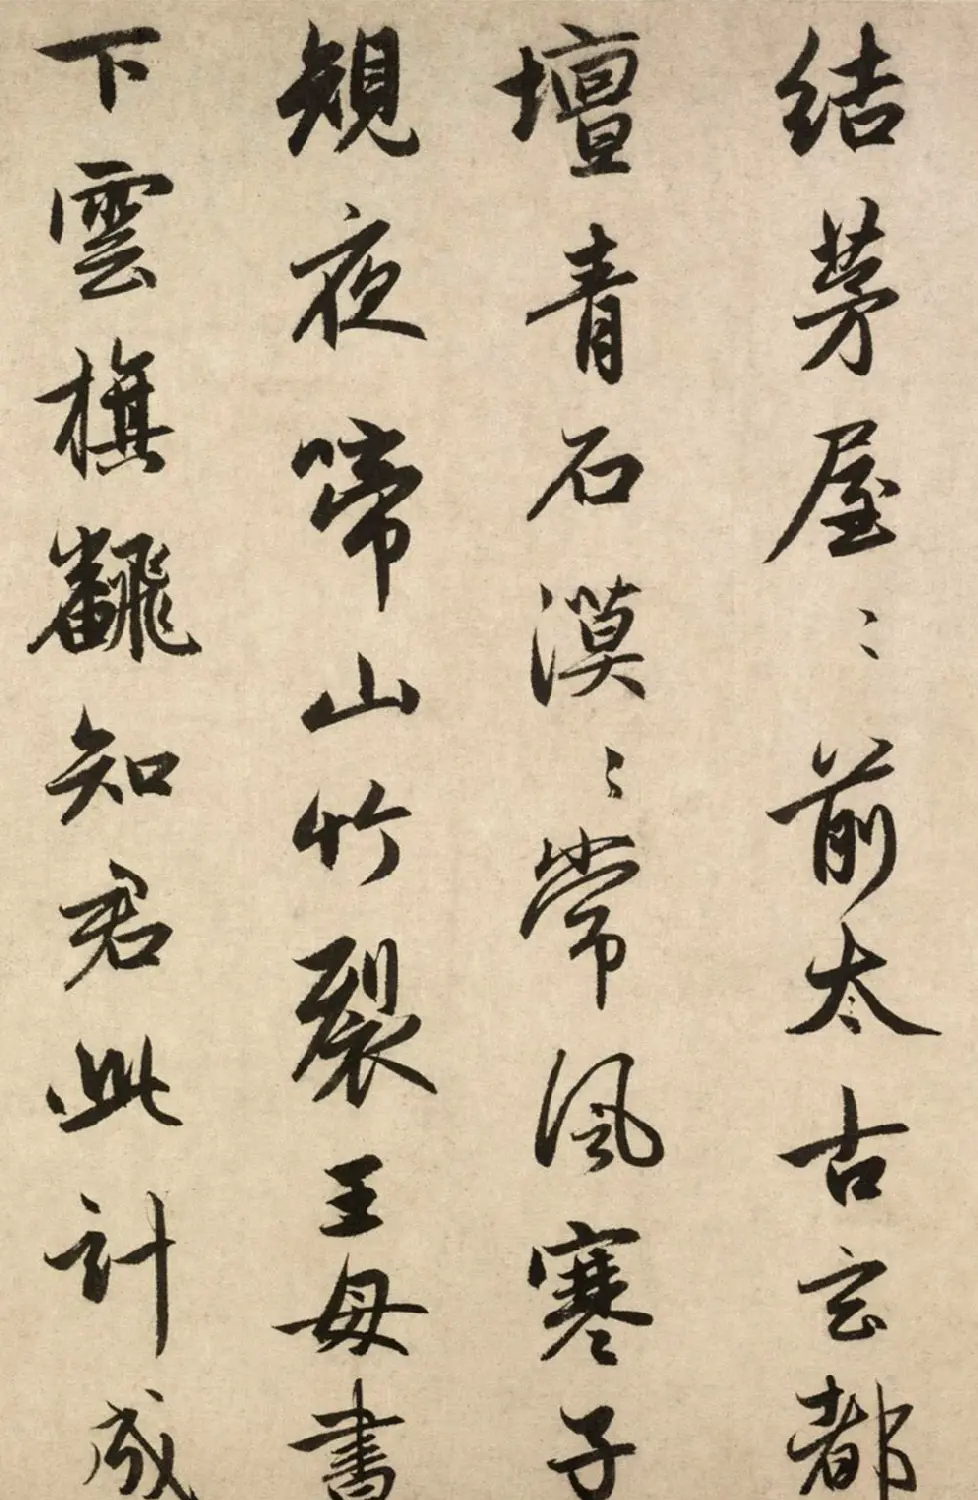 结茅屋〻前太古玄都
壇青石漠〻常風寒子
規夜啼山竹裂王母晝
下雲旗飜知君此計成